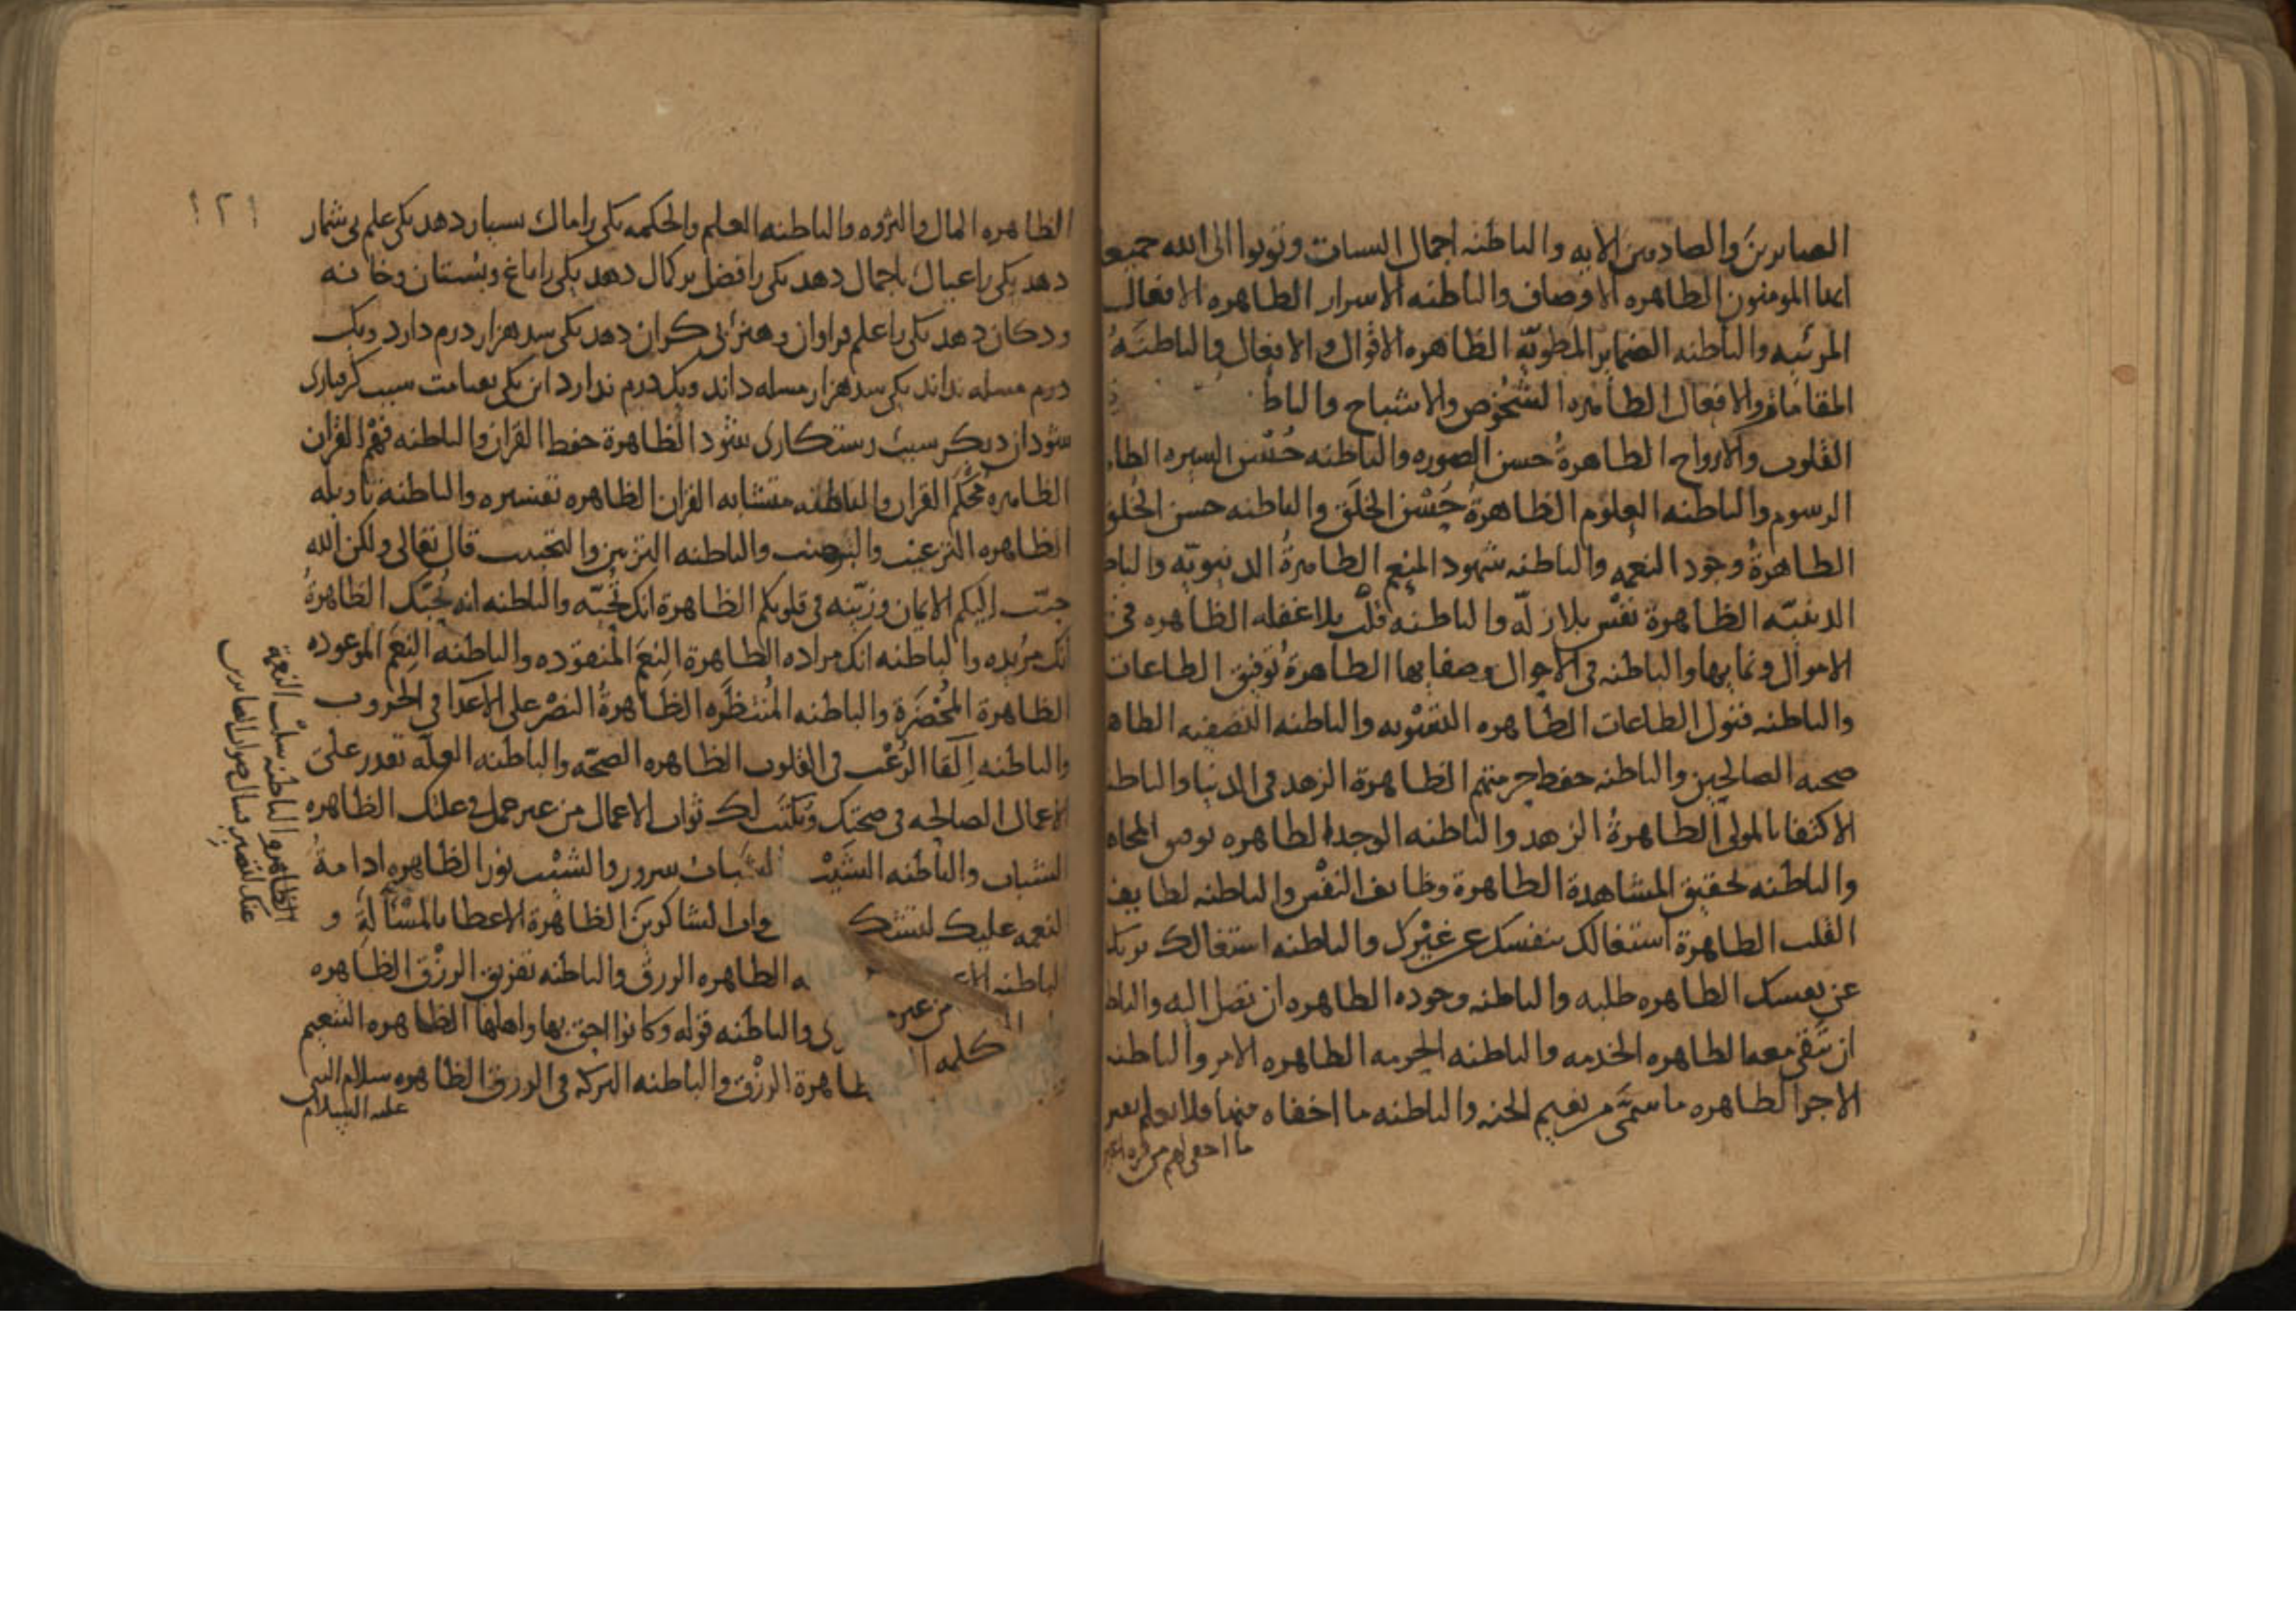 الصابرين والصادقين الايه والباطنه اجمال السيات وتوبوا الى الله جميعا
ايها المومنون الظاهره الاوصاف والباطنه الاسرار الظاهره الافعال
المرئيه والباطنه الضماير المطويّه الظاهره الاقوال والافعال والباطنَهُ
المقامات والافعال الظاهره الشُخُوص والاشباح والباط
القلوب والارواح الظاهرةُ حسن الصوره والباطنه حُسْن السيره الظا
الرسوم والباطنه العلوم الظاهرةُ حُسْن الخَلق والباطنه حسن الخُلق
الظاهرةُ وجود النعمه والباطنه شهود المنعِم الظاهرةُ الدنيويّه والباط
الدينيّه الظاهرة نفس بلا زلّه والباطنه قلب بلا غفله الظاهره فى
الاموال ونمايها والباطنه فى الاحوال وصفايها الظاهرةُ توفيق الطاعات
والباطنه قبول الطاعات الظاهره التسويه والباطنه التصفيه الظاه
صحبه الصالحين والباطنه حفظ حرمتهم الظاهرة الزهد فى الدنيا والباطنه
الاكتفا بالمولى الظاهرةُ الزهد والباطنه الوجد الظاهره توفيق المجاه
والباطنه تحقيق المشاهدة الظاهرة وظايف النفْس والباطنه لطايف
القلب الظاهرة اشتغالك بنفسك عن غيْرك والباطنه اشتغالك بربك
عن نفسك الظاهره طلبه والباطنه وجوده الظاهره ان تصل اليه والباط
ان تبقى معه الظاهره الخدمه والباطنه الحرمه الظاهره الامر والباطنه
الاجر الظاهره ما سمّى من نعيم الجنه والباطنه ما اخفاه منها فلا تعلم نفس
ما اخفى لهم من قره اعين
١٢١
الظاهره المال والثروه والباطنه العلم والحكمه يكى را مال بسيار دهد يكى علم بى شمار
دهد يكى را عيال باجمال دهد يكى را فضل بركمال دهد يكى را باغ وبستان وخانه
ودكان دهد يكى را علم فراوان وهنر بى كران دهد يكى سد هزار درم دارد ويك
درم مسله نداند يكى سد هزار مسله داند ويك درم ندارد اين يكى بقيامت سبب كرفتارى
شود ان ديكر سبب رستكارى شود الظاهرة حفظ القران والباطنه فهْم القران
الظاهره مُحكَم القران والباطنه متشابه القران الظاهره تفسيره والباطنة تاويله
الظاهره الترغيب والترهيب والباطنه التزيين والتحبيب قال تعالى ولكن الله
حبّب إليكم الايمان وزيّنه فى قلوبكم الظاهرة انك تُحبّه والباطنه انه يُحبّك الظاهرةُ
انك مُريده والباطنه انك مراده الظاهرة النِعَم المنقوده والباطنه النِعَم الموعوده
الظاهرة المُحْضَرَة والباطنه المُنتظَره الظاهرةُ النصْر على الاعدآ فى الحروب
والباطنه اِلقا الرُعْب فى القلوب الظاهره الصحّه والباطنه العِلّه تقدر على
الاعمال الصالحه فى صحّتك ويُكتَب لك ثواب الاعمال من غير عمل فى علّتك الظاهره
الشباب والباطنه الشَيْب الشباب سرور والشيْب نور الظاهره ادامةُ
النعمه عليك لتشك واب الشاكرين الظاهرة الاعطا بالمسْألةِ و
الباطنه الاع ه الظاهره الرزق والباطنه تفريق الرزْق الظاهره
كلمه من غير ى والباطنه قوله وكانوا احق بها واهلها الظاهره التنعيم
ظاهرة الرزْق والباطنه البركه فى الرزق الظاهره سلام النبى
عليه السلام
الظاهره والباطنه سلْب النعمة
عنك لتصبر فتنال ثواب الصابرين